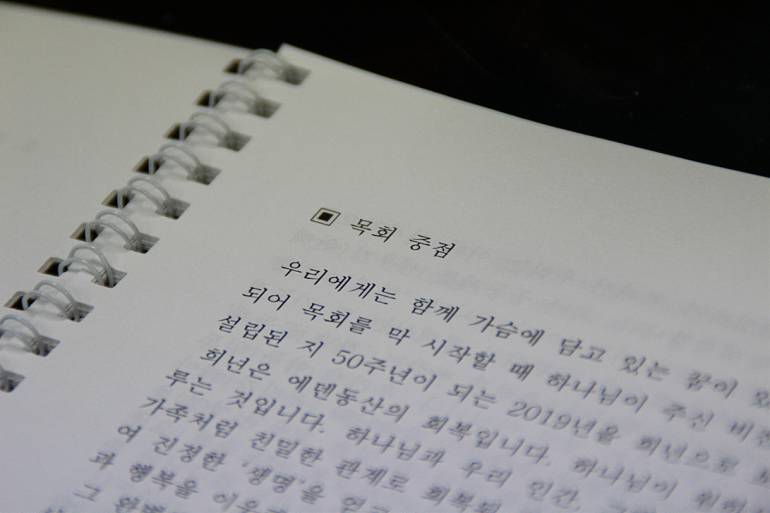 ▣ 목회 중점
우리에게는 함께 가슴에 담고 있는 꿈이
되어 목회를 막 시작할 때 하나님이 주신
설립된 지 50주년이 되는 2019년을 희년으로
희년은 에덴동산의 회복입니다. 하나님이
루는 것입니다. 하나님과 우리 인간,
가족처럼 친밀한 관계로 회복된
여 진정한 '생명'을 얻고
과 행복을 이루
그